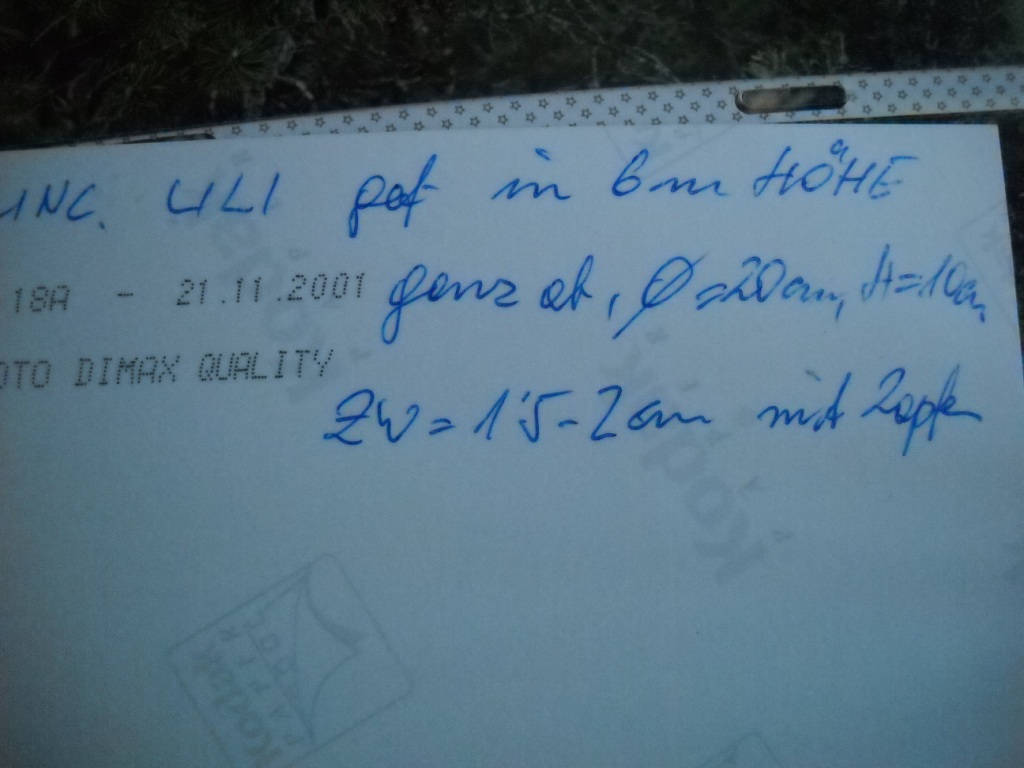 UNC. LILI gef in 6m HÖHE
18A - 21.11.2001 ganz ob, Ø=20cm, H=10cm
OTO DIMAX QUALITY
ZW = 1'5-2cm mit Zapfen
Kodak
Kodak